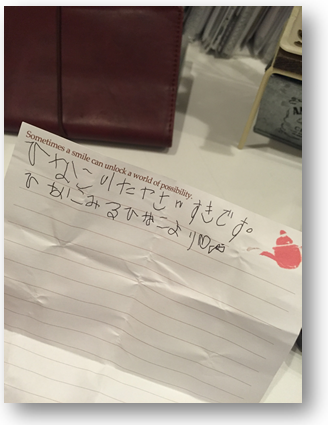 Sometimes a smile can unlock a world of possibility.
ひなこりたやさ すきです。
ひなこみるひなこより♡